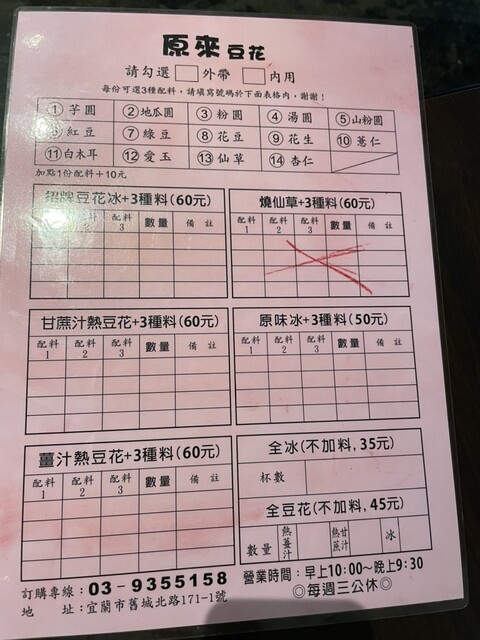 原來 豆花
請勾選 外帶 內用
每份可選3種配料,請填寫號碼於下面表格內,謝謝!
①芋圓 ②地瓜圓 ③粉圓 ④湯圓 ⑤山粉圓
⑥紅豆 ⑦綠豆 ⑧花豆 ⑨花生 ⑩薏仁
⑪白木耳 ⑫愛玉 ⑬仙草 ⑭杏仁
加點1份配料+10元
招牌豆花冰+3種料(60元)
配料1 配料2 配料3 數量 備註
燒仙草+3種料(60元)
配料1 配料2 配料3 數量 備註
甘蔗汁熱豆花+3種料(60元)
配料1 配料2 配料3 數量 備註
原味冰+3種料(50元)
配料1 配料2 配料3 數量 備註
薑汁熱豆花+3種料(60元)
配料1 配料2 配料3 數量 備註
全冰(不加料,35元)
杯數
全豆花(不加料,45元)
數量 熱薑汁 熱甘蔗汁 冰
訂購專線:03-9355158
地 址:宜蘭市舊城北路171-1號
營業時間:早上10:00~晚上9:30
◎每週三公休◎